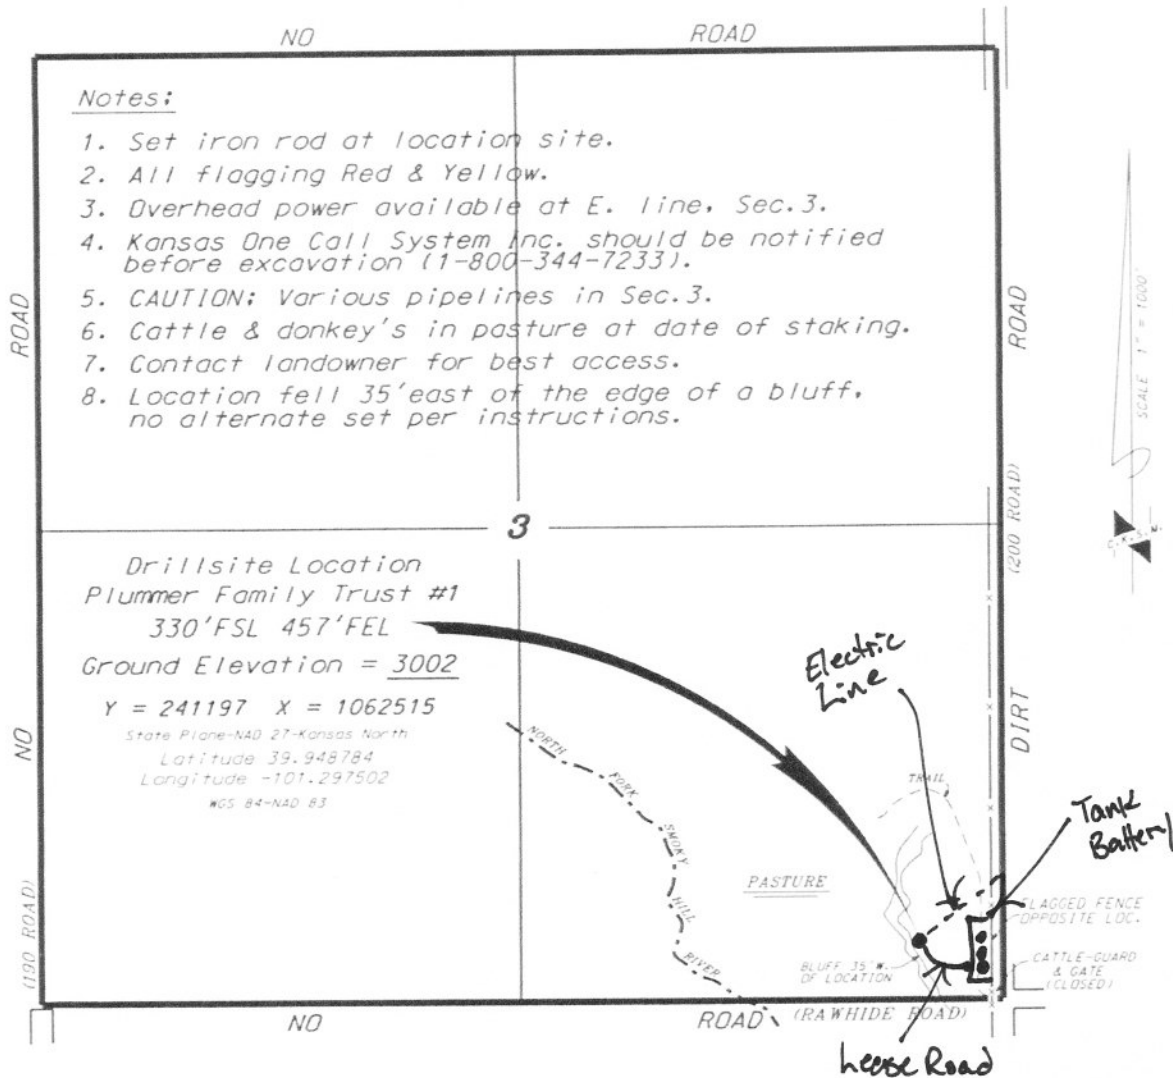 NO ROAD
Notes:
1. Set iron rod at location site.
2. All flagging Red & Yellow.
3. Overhead power available at E. line, Sec.3.
4. Kansas One Call System Inc. should be notified
before excavation (1-800-344-7233).
5. CAUTION: Various pipelines in Sec.3.
6. Cattle & donkey's in pasture at date of staking.
7. Contact landowner for best access.
8. Location fell 35'east of the edge of a bluff,
no alternate set per instructions.
ROAD
ROAD
SCALE 1" = 1000'
(200 ROAD)
3
C.K.S.N.
Drillsite Location
Plummer Family Trust #1
330'FSL 457'FEL
Ground Elevation = 3002
Y = 241197 X = 1062515
State Plane-NAD 27-Kansas North
Latitude 39.948784
Longitude -101.297502
WGS 84-NAD 83
Electric
Line
DIRT
NO
NORTH
FORK
SMOKY
HILL
RIVER
TRAIL
Tank
Battery
PASTURE
FLAGGED FENCE
OPPOSITE LOC.
(190 ROAD)
BLUFF 35'W.
OF LOCATION
CATTLE-GUARD
& GATE
(CLOSED)
NO ROAD (RAWHIDE ROAD)
Lease Road